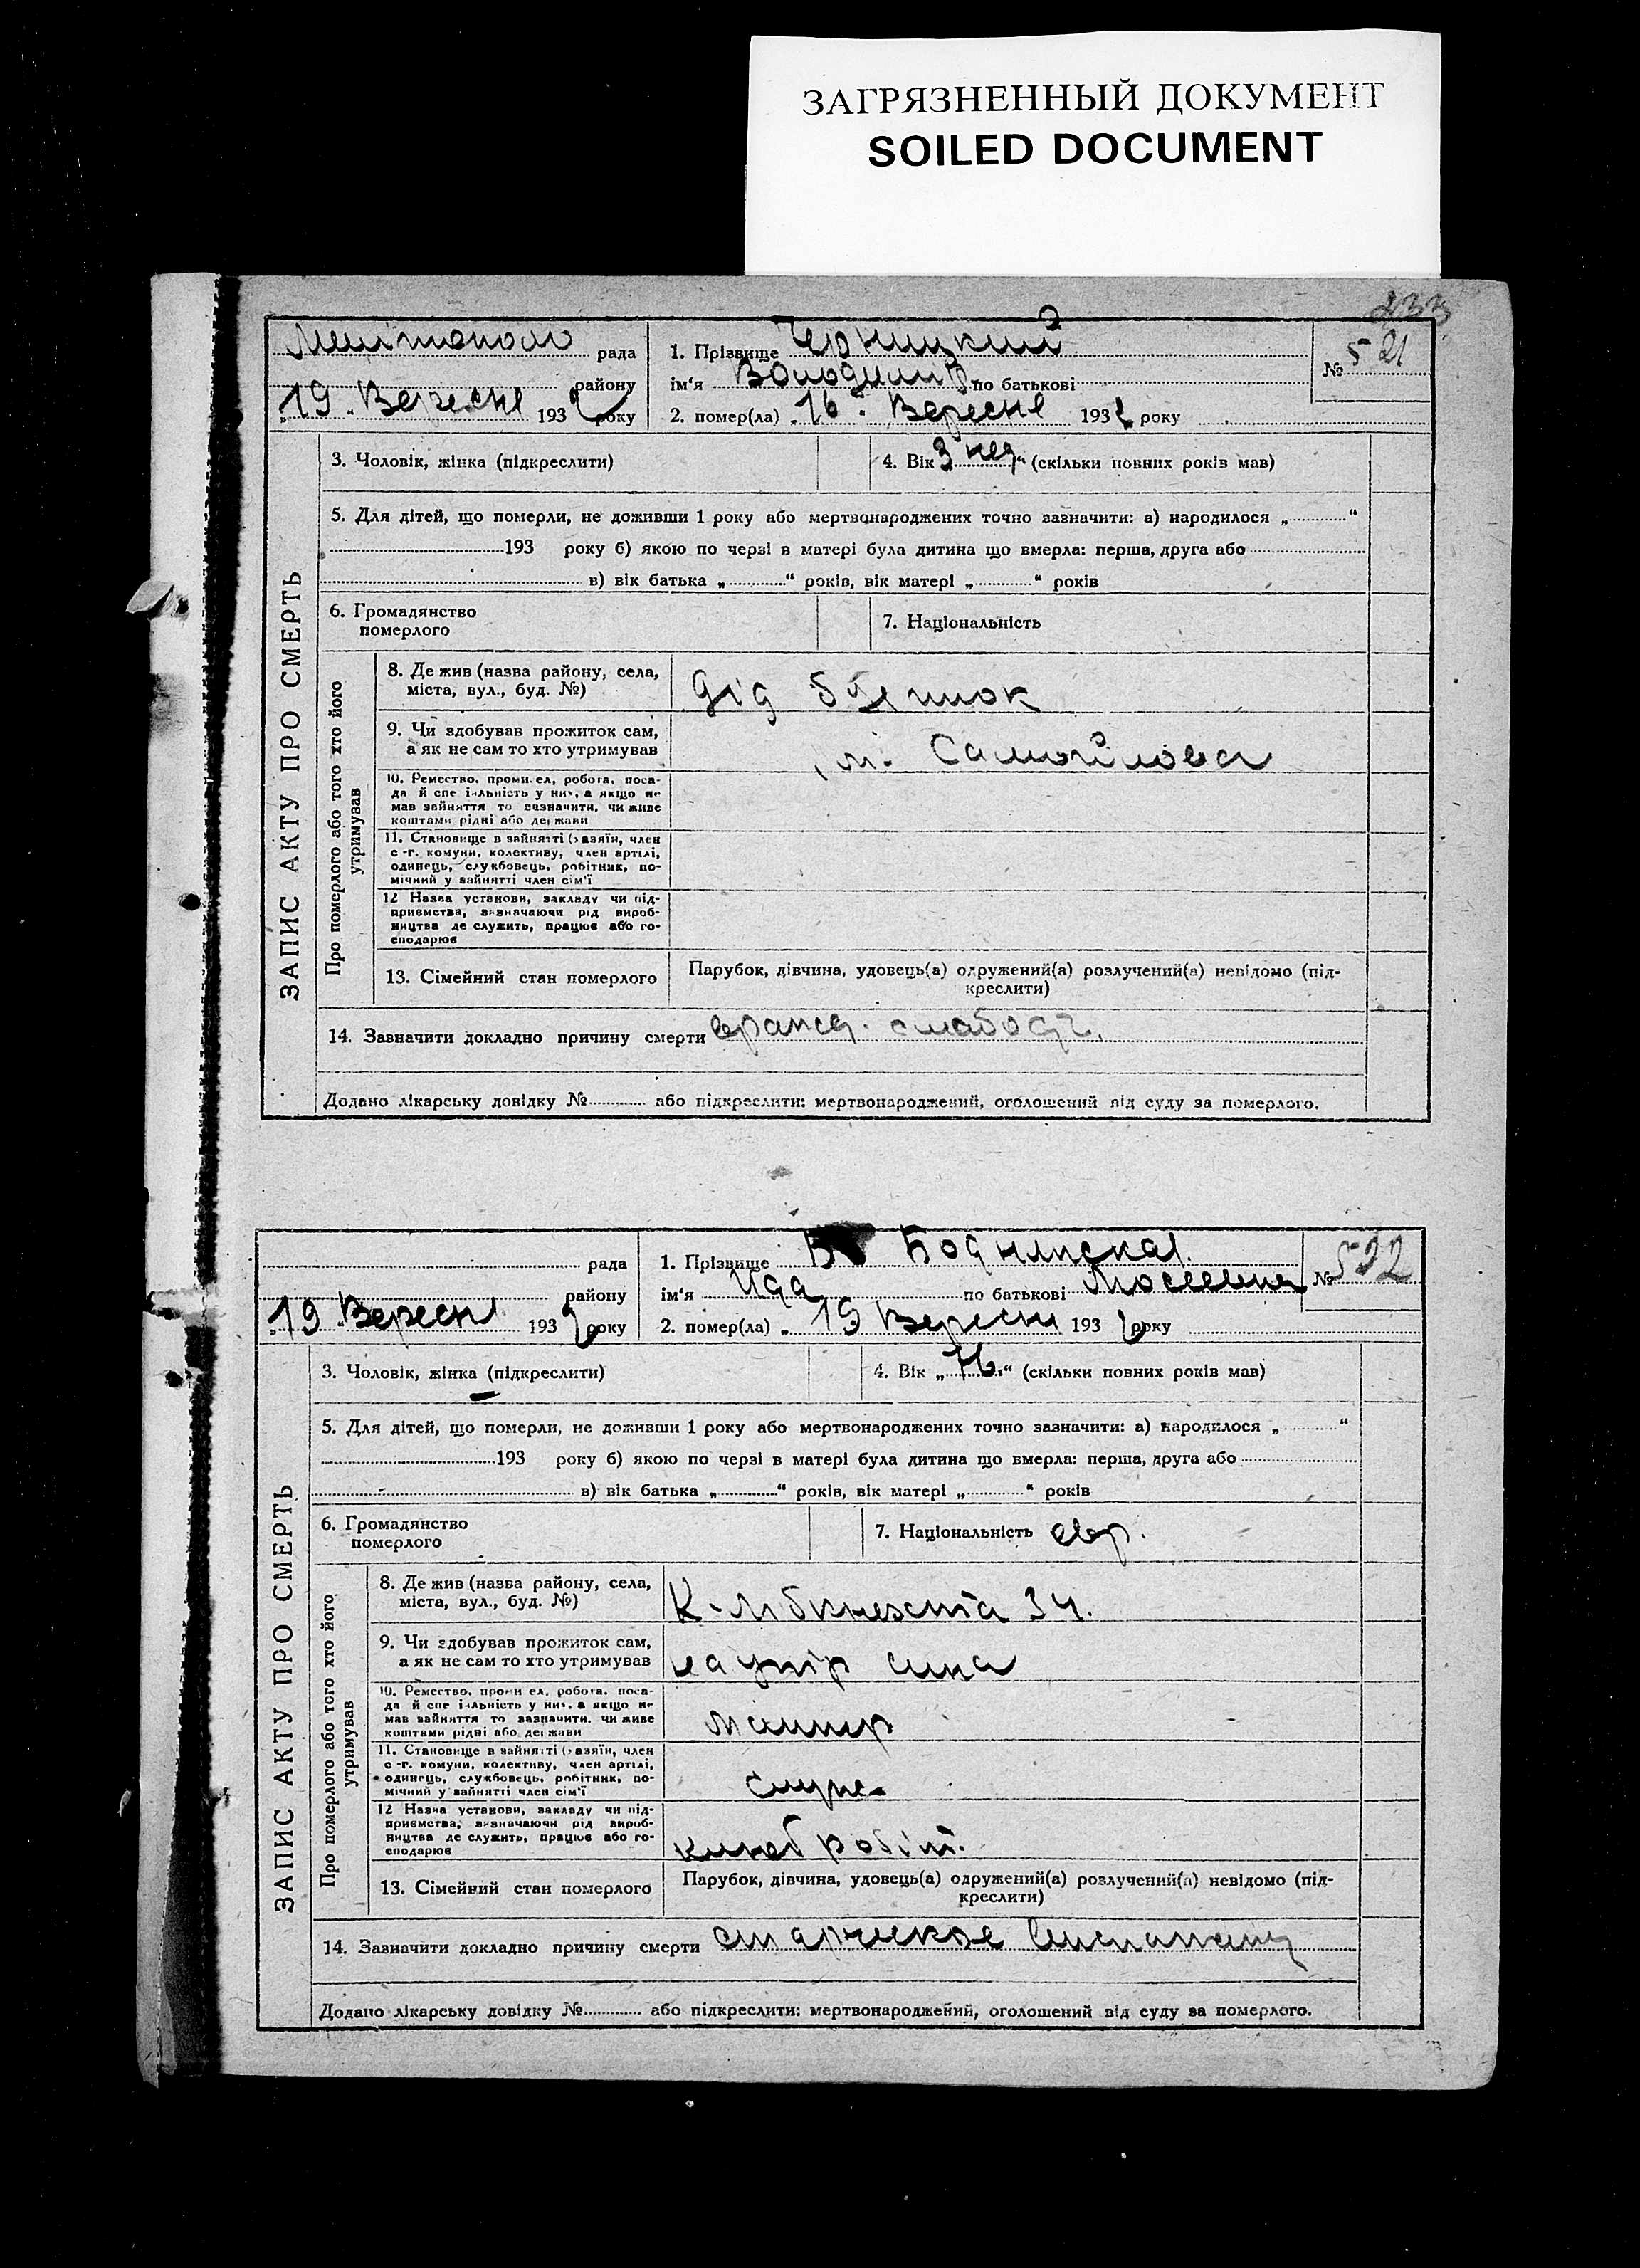 ЗАГРЯЗНЕННЫЙ ДОКУМЕНТ
SOILED DOCUMENT
233
Мелітополь рада
району
„19„ Вересня 1932 року
1. Прізвище Черницкий
ім'я Володимир по батькові
2. помер(ла) „16" Вересня 1932 року
№ 521
ЗАПИС АКТУ ПРО СМЕРТЬ
3. Чоловік, жінка (підкреслити)
4. Вік 3 нед „ " (скільки повних років мав)
5. Для дітей, що померли, не доживши 1 року або мертвонароджених точно зазначити: а) народилося „ "
193 року б) якою по черзі в матері була дитина що вмерла: перша, друга або
в) вік батька „ " років, вік матері „ " років
6. Громадянство
померлого
7. Національність
Про померлого або того хто його
утримував
8. Де жив (назва району, села,
міста, вул., буд. №)
дід
9. Чи здобував прожиток сам,
а як не сам то хто утримував
Самойлова
10. Ремество, промисел, робота, поса-
да й спеціяльність у них, а якщо не
мав зайняття то зазначити, чи живе
коштами рідні або держави
11. Становище в зайнятті (хазяїн, член
с.-г. комуни, колективу, член артілі,
одинець, службовець, робітник, по-
мічний у зайнятті член сім'ї
12 Назва установи, закладу чи під-
приємства, визначаючи рід вироб-
ництва де служить, працює або го-
сподарює
13. Сімейний стан померлого
Парубок, дівчина, удовець(а) одружений(а) розлучений(а) невідомо (під-
креслити)
14. Зазначити докладно причину смерти
Додано лікарську довідку № або підкреслити: мертвонароджений, оголошений від суду за померлого.
рада
району
„19„ Вересня 1932 року
1. Прізвище Боднянская
ім'я Ида по батькові Мосеевна
2. помер(ла) „ 19 Вересня 1932 року
№ 522
ЗАПИС АКТУ ПРО СМЕРТЬ
3. Чоловік, жінка (підкреслити)
4. Вік „76" (скільки повних років мав)
5. Для дітей, що померли, не доживши 1 року або мертвонароджених точно зазначити: а) народилося „ "
193 року б) якою по черзі в матері була дитина що вмерла: перша, друга або
в) вік батька „ " років, вік матері „ " років
6. Громадянство
померлого
7. Національність евр.
Про померлого або того хто його
утримував
8. Де жив (назва району, села,
міста, вул., буд. №)
К-Лібкнехта 34.
9. Чи здобував прожиток сам,
а як не сам то хто утримував
на утр сина
10. Ремество, промисел, робота, поса-
да й спеціяльність у них, а якщо не
мав зайняття то зазначити, чи живе
коштами рідні або держави
11. Становище в зайнятті (хазяїн, член
с.-г. комуни, колективу, член артілі,
одинець, службовець, робітник, по-
мічний у зайнятті член сім'ї
служ.
12 Назва установи, закладу чи під-
приємства, визначаючи рід вироб-
ництва де служить, працює або го-
сподарює
робіт.
13. Сімейний стан померлого
Парубок, дівчина, удовець(а) одружений(а) розлучений(а) невідомо (під-
креслити)
14. Зазначити докладно причину смерти старческое
Додано лікарську довідку № або підкреслити: мертвонароджений, оголошений від суду за померлого.